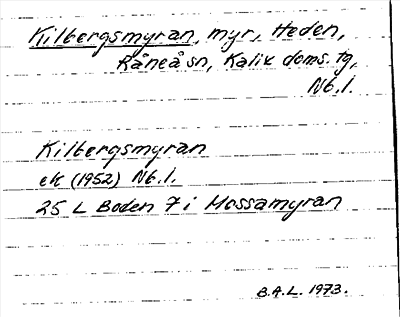 Kilbergsmyran, myr, Heden,
Råneå sn, Kalix doms. tg,
Nb. l.
Kilbergsmyran
ek (1952) Nb. l.
25 L Boden 7 i Mossamyran
B.A.L. 1973.